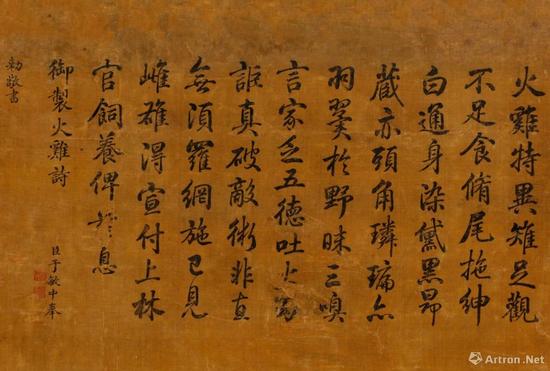 火雞特異雉足觀
不足食脩尾拖紳
白通身染黛黑昂
藏亦頭角璘㻞亦
羽翼於野昧三嗅
言家乏五德吐火
詎真破敵術非直
無須羅網施已見
雌雄得宣付上林
官飼養俾蕃息
御製火雞詩
臣于敏中奉
勅敬書
雅昌艺术网
Artron.Net